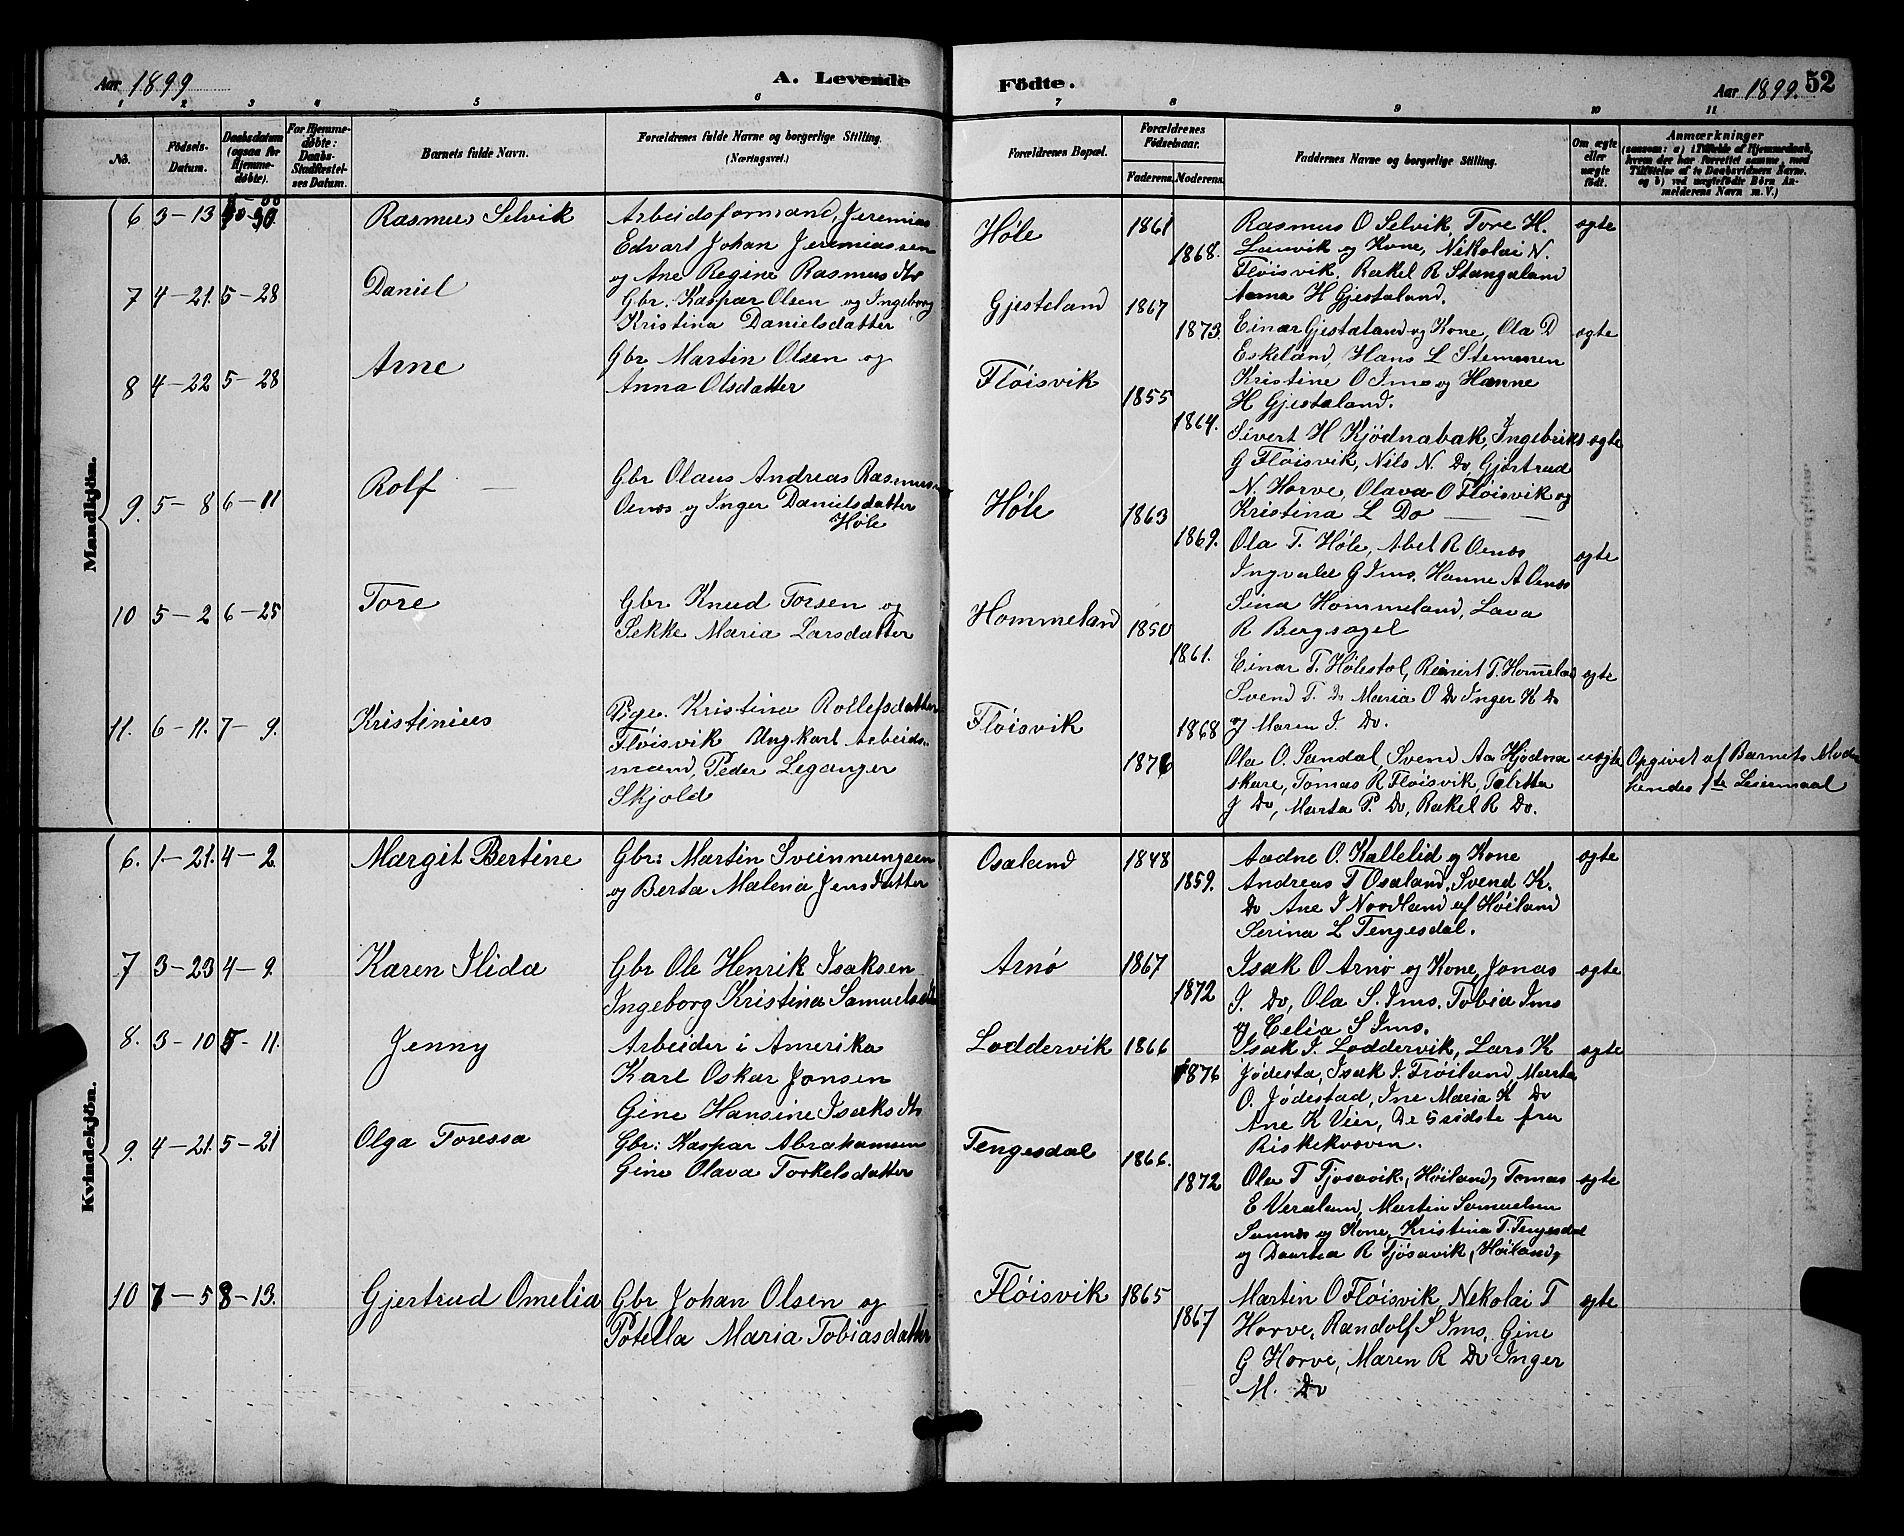 Aar 1899
A. Levende
Födte.
Aar 1899. 52
1 2 3 4 5 6 7 8 9 10 11
No.
Födsels-Datum.
Daabsdatum (ogsaa for Hjemme-döbte).
For Hjemme-döbte: Daabs-Stadfæstel-ses Datum.
Barnets fulde Navn.
Forældrenes fulde Navne og borgerlige Stilling. (Næringsvei.)
Forældrenes Bopæl.
Forældrenes Födselsaar.
Faderens. Moderens.
Faddernes Navne og borgerlige Stilling.
Om ægte eller uægte födt.
Anmærkninger
Mandkjön.
6 3-13 Rasmus Selvik
Arbeidsformand, Jeremias
Edvart Johan Jeremiassen
og Ane Regine Rasmusdtr
Høle 1861 1868.
Rasmus O Selvik, Tore H.
Lauvik og Kone, Nikolai N.
Fløisvik, Rakel R Stangeland
Anna H Gjestaland.
ægte
7 4-21. 5-28 Daniel
Gbr. Kaspar Olsen og Ingeborg
Kristina Danielsdatter
Gjesteland 1867 1873.
Einar Gjestaland og Kone, Ola D
Eskeland, Hans L Stemmen
Kristine O Ims og Hanne
H Gjestaland.
ægte
8 4-22 5-28 Arne
Gbr Martin Olsen og
Anna Olsdatter
Fløisvik 1855 1864.
Sivert H Kjødnabak, Ingebrikt
G Fløisvik, Nils N. Do, Gjertrud
N. Horve, Olava O Fløisvik og
Kristina L Do
ægte
9. 5-8 6-11 Rolf
Gbr Olaus Andreas Rasmussen
Oenes og Inger Danielsdatter
Høle
Høle 1863 1869.
Ola T. Høle, Abel R Oenes
Ingvald G Ims, Hanne A Oenes
Sina Hommeland, Lava
R Bergsagel
ægte
10 5-2 6-25 Tore
Gbr Knud Torsen og
Sekke Maria Larsdatter
Hommeland 1850 1861.
Einar T. Hølestøl, Reinert T. Hommeland
Svend T. Do Maria O Do Inger K Do
og Maren I. Do.
ægte
11. 6-11. 7-9. Kristinius
Pige. Kristina Rollefsdatter
Fløisvik Ungkarl Arbeids-
mand, Peder Leganger
Skjold
Fløisvik 1868 1876
Ola O. Sandal, Svend Aa Hjødna
skare, Tomas R Fløisvik, Talitta
J Do, Marta P. Do, Rakel R Do.
uægte
Opgivet af Barnets Moder
hendes 1ste Leiermaal
Kvindekjön.
6. 1-21. 4-2. Margit Bertine
Gbr: Martin Sveinnungsen
og Berta Malena Jensdatter
Osaland 1848 1859.
Aadne O. Kallelid og Kone
Andreas T Osaland, Svend K.
Do Ane I Nordland af Høiland
Serina L Tengesdal.
ægte
7 3-23 4-9. Karen Ilida
Gbr Ole Henrik Isaksen
Ingeborg Kristina Samuelsdtr
Arnø 1867 1872
Isak O Arnø og Kone, Jonas
I. Do, Ola S. Ims, Tobia Ims
og Celia S Ims.
ægte
8. 3-10 5-11. Jenny
Arbeider i Amerika
Karl Oskar Jonsen
Gine Hansine Isaksdtr
Loddervik 1866 1876
Isak I. Loddervik, Lars K
Jødesta, Isak I. Frøiland, Marta
O. Jødestad, Ine Maria K Do
Ane K Vier, De 5 sidste fra
Riskekvæven.
ægte
9. 4-21. 5-21 Olga Toressa
Gbr: Kaspar Abrahamsen
Gine Olava Torkelsdatter
Tengesdal 1866. 1872
Ola T Tjøsavik, Høiland, Tomas
E Veraland, Martin Samuelsen
Sunnes og Kone, Kristina T. Tengesdal
og Daartea R Tjøsavik, Høiland,
ægte
10 7-5 8-13. Gjertrud Omelia
Gbr Johan Olsen og
Potella Maria Tobiasdatter
Fløisvik 1865 1867
Martin O Fløisvik, Nikolai T
Horve, Randolf S Ims, Gine
G Horve, Maren R Do Inger
M. Do
ægte